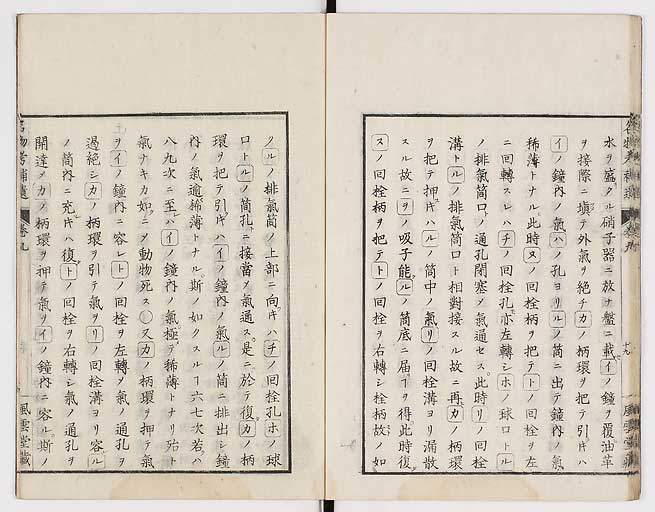 水ヲ盛クル硝子器ニ放ナ盤ニ載イノ鐘ヲ覆油革
ヲ接際ニ塡テ外氣ヲ絶チカノ柄環ヲ把テ引キハ
イノ鐘內ノ氣ハノ孔ヨリルノ筒ニ出テ鐘內ノ氣
稀薄トナル此時ヌノ回栓柄ヲ把テトノ回栓ヲ左
ニ回轉スレハチノ回栓孔亦左轉シホノ球口トル
ノ排氣筒口ノ通孔閉塞乄氣通セス此時リノ回栓
溝トルノ排氣筒口ト相對接スル故ニ再カノ柄環
ヲ把テ押キハルノ筒中ノ氣リノ回栓溝ヨリ漏散
スル故ニヲノ吸子能ルノ筒底ニ届ヿヲ得此時復
スノ回栓柄ヲ把テトノ回栓ヲ右轉シ栓柄故ノ如
十九
風雲堂藏
クルノ排氣筒ノ上部ニ向キハチノ回栓孔ホノ球
口トルノ筒孔ニ接當乄氣通ス是ニ於テ復カノ柄
環ヲ把テ引キハイノ鐘內ノ氣ルノ筒ニ排出シ鐘
內ノ氣逾稀薄トナル斯ノ如クスルヿ六七次若ハ
八九次ニ至ハイノ鐘內ノ氣極テ稀薄トナリ殆ト
氣ナキカ如ニ乄動物死ス○又カノ柄環ヲ押テ氣
ヲイノ鐘內ニ容レトノ回栓ヲ左轉乄氣ノ通孔ヲ
遏絶シカノ柄環ヲ引テ氣ヲリノ回栓溝ヨリ容ル
ノ筒內ニ充キハ復トノ回栓ヲ右轉シ氣ノ通孔ヲ
開達乄カノ柄環ヲ押テ氣イノ鐘內ニ容ル斯ノ
名物考補遺 卷九
風雲堂藏